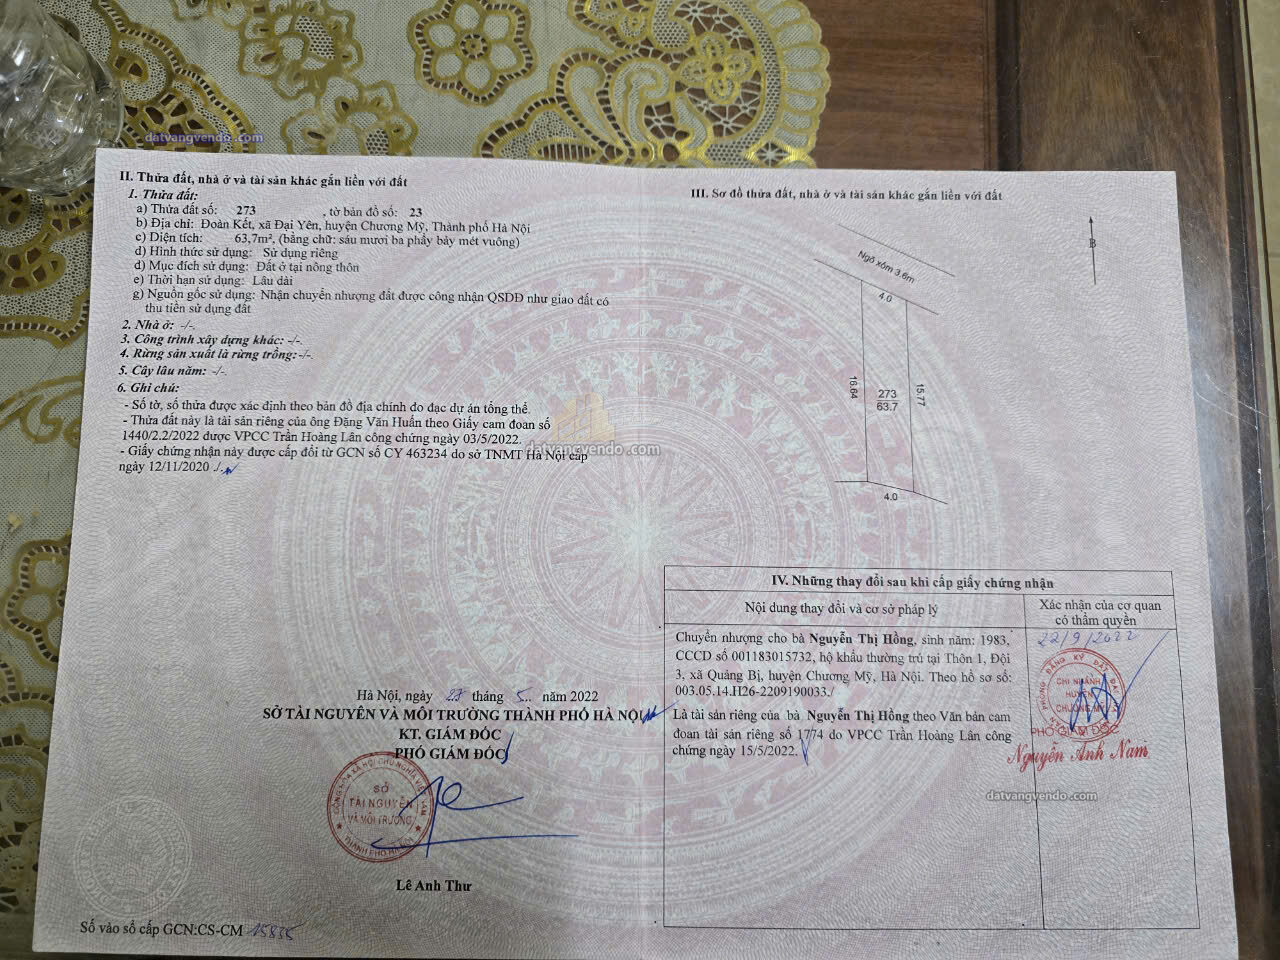 datvangvendo.com
II. Thửa đất, nhà ở và tài sản khác gắn liền với đất
1. Thửa đất:
a) Thửa đất số: 273 , tờ bản đồ số: 23
b) Địa chỉ: Đoàn Kết, xã Đại Yên, huyện Chương Mỹ, Thành phố Hà Nội
c) Diện tích: 63,7m², (bằng chữ: sáu mươi ba phẩy bảy mét vuông)
d) Hình thức sử dụng: Sử dụng riêng
đ) Mục đích sử dụng: Đất ở tại nông thôn
e) Thời hạn sử dụng: Lâu dài
g) Nguồn gốc sử dụng: Nhận chuyển nhượng đất được công nhận QSDĐ như giao đất có
thu tiền sử dụng đất
2. Nhà ở: -/-.
3. Công trình xây dựng khác: -/-.
4. Rừng sản xuất là rừng trồng: -/-.
5. Cây lâu năm: -/-.
6. Ghi chú:
- Số tờ, số thửa được xác định theo bản đồ địa chính đo đạc dự án tổng thể.
- Thửa đất này là tài sản riêng của ông Đặng Văn Huấn theo Giấy cam đoan số
1440/2.2/2022 được VPCC Trần Hoàng Lân công chứng ngày 03/5/2022.
- Giấy chứng nhận này được cấp đổi từ GCN số CY 463234 do sở TNMT Hà Nội cấp
ngày 12/11/2020 ./.
datvangvendo.com
Hà Nội, ngày 27 tháng 5.. năm 2022
SỞ TÀI NGUYÊN VÀ MÔI TRƯỜNG THÀNH PHỐ HÀ NỘI
KT. GIÁM ĐỐC
PHÓ GIÁM ĐỐC
CỘNG HÒA XÃ HỘI CHỦ NGHĨA VIỆT NAM
SỞ
TÀI NGUYÊN
VÀ MÔI TRƯỜNG
THÀNH PHỐ HÀ NỘI
Lê Anh Thư
Số vào sổ cấp GCN:CS-CM 15835
III. Sơ đồ thửa đất, nhà ở và tài sản khác gắn liền với đất
B
Ngõ xóm 3.6m
4.0
16.64
273
63.7
15.77
4.0
IV. Những thay đổi sau khi cấp giấy chứng nhận
Nội dung thay đổi và cơ sở pháp lý
Xác nhận của cơ quan
có thẩm quyền
Chuyển nhượng cho bà Nguyễn Thị Hồng, sinh năm: 1983,
CCCD số 001183015732, hộ khẩu thường trú tại Thôn 1, Đội
3, xã Quảng Bị, huyện Chương Mỹ, Hà Nội. Theo hồ sơ số:
003.05.14.H26-2209190033./
Là tài sản riêng của bà Nguyễn Thị Hồng theo Văn bản cam
đoan tài sản riêng số 1774 do VPCC Trần Hoàng Lân công
chứng ngày 15/5/2022.
22/9/2022
VĂN PHÒNG ĐĂNG KÝ ĐẤT ĐAI
CHI NHÁNH
HUYỆN
CHƯƠNG MỸ
PHÓ GIÁM ĐỐC
Nguyễn Anh Nam
datvangvendo.com